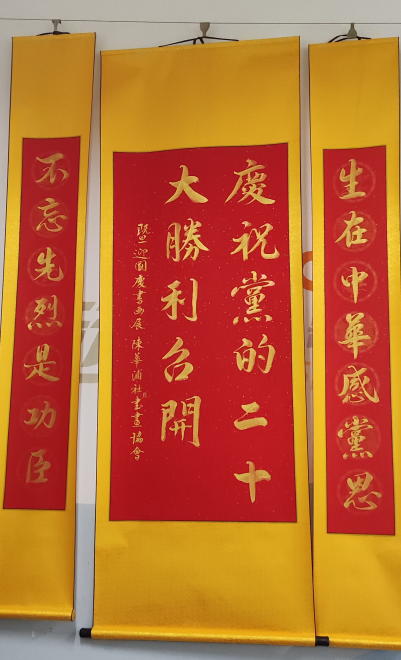 生在中華感黨恩
慶祝黨的二十
大勝利召開
暨迎國慶書画展 陳華浦社書畫協會
不忘先烈是功臣